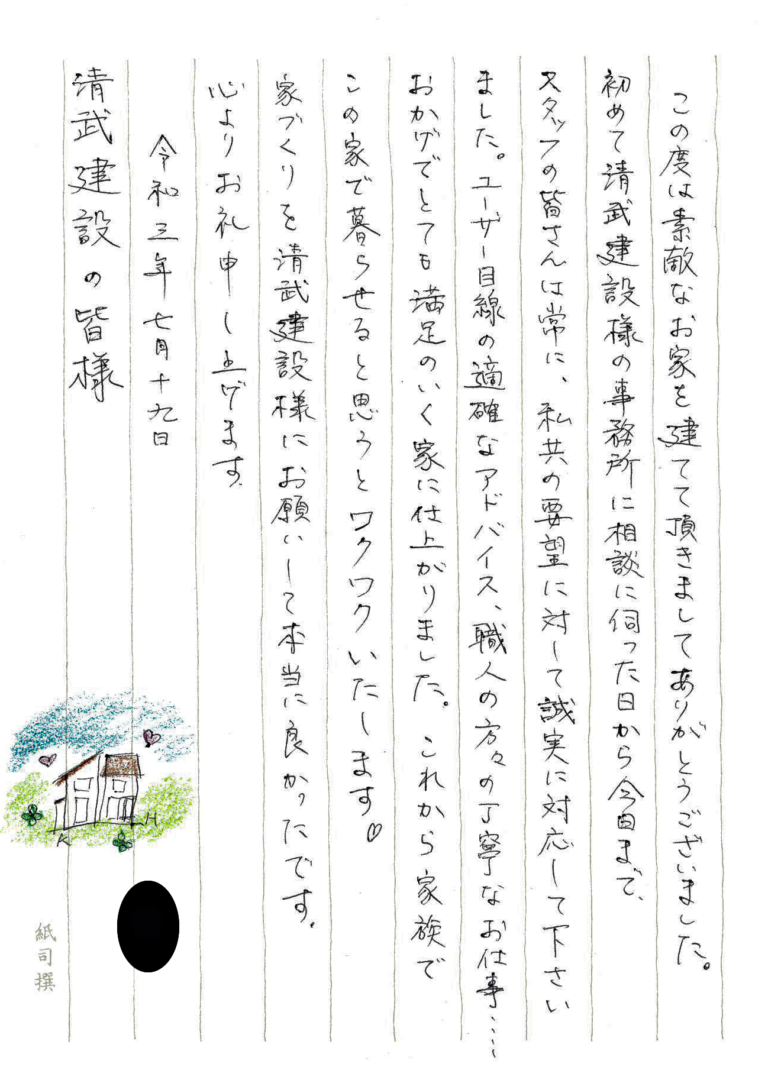 この度は素敵なお家を建てて頂きましてありがとうございました。
初めて清武建設様の事務所に相談に伺った日から今日まで、
スタッフの皆さんは常に、私共の要望に対して誠実に対応して下さい
ました。ユーザー目線の適確なアドバイス、職人の方々の丁寧なお仕事……
おかげでとても満足のいく家に仕上がりました。これから家族で
この家で暮らせると思うとワクワクいたします♡
家づくりを清武建設様にお願いして本当に良かったです。
心よりお礼申し上げます。
令和三年七月十九日
清武建設の皆様
K H
紙司撰